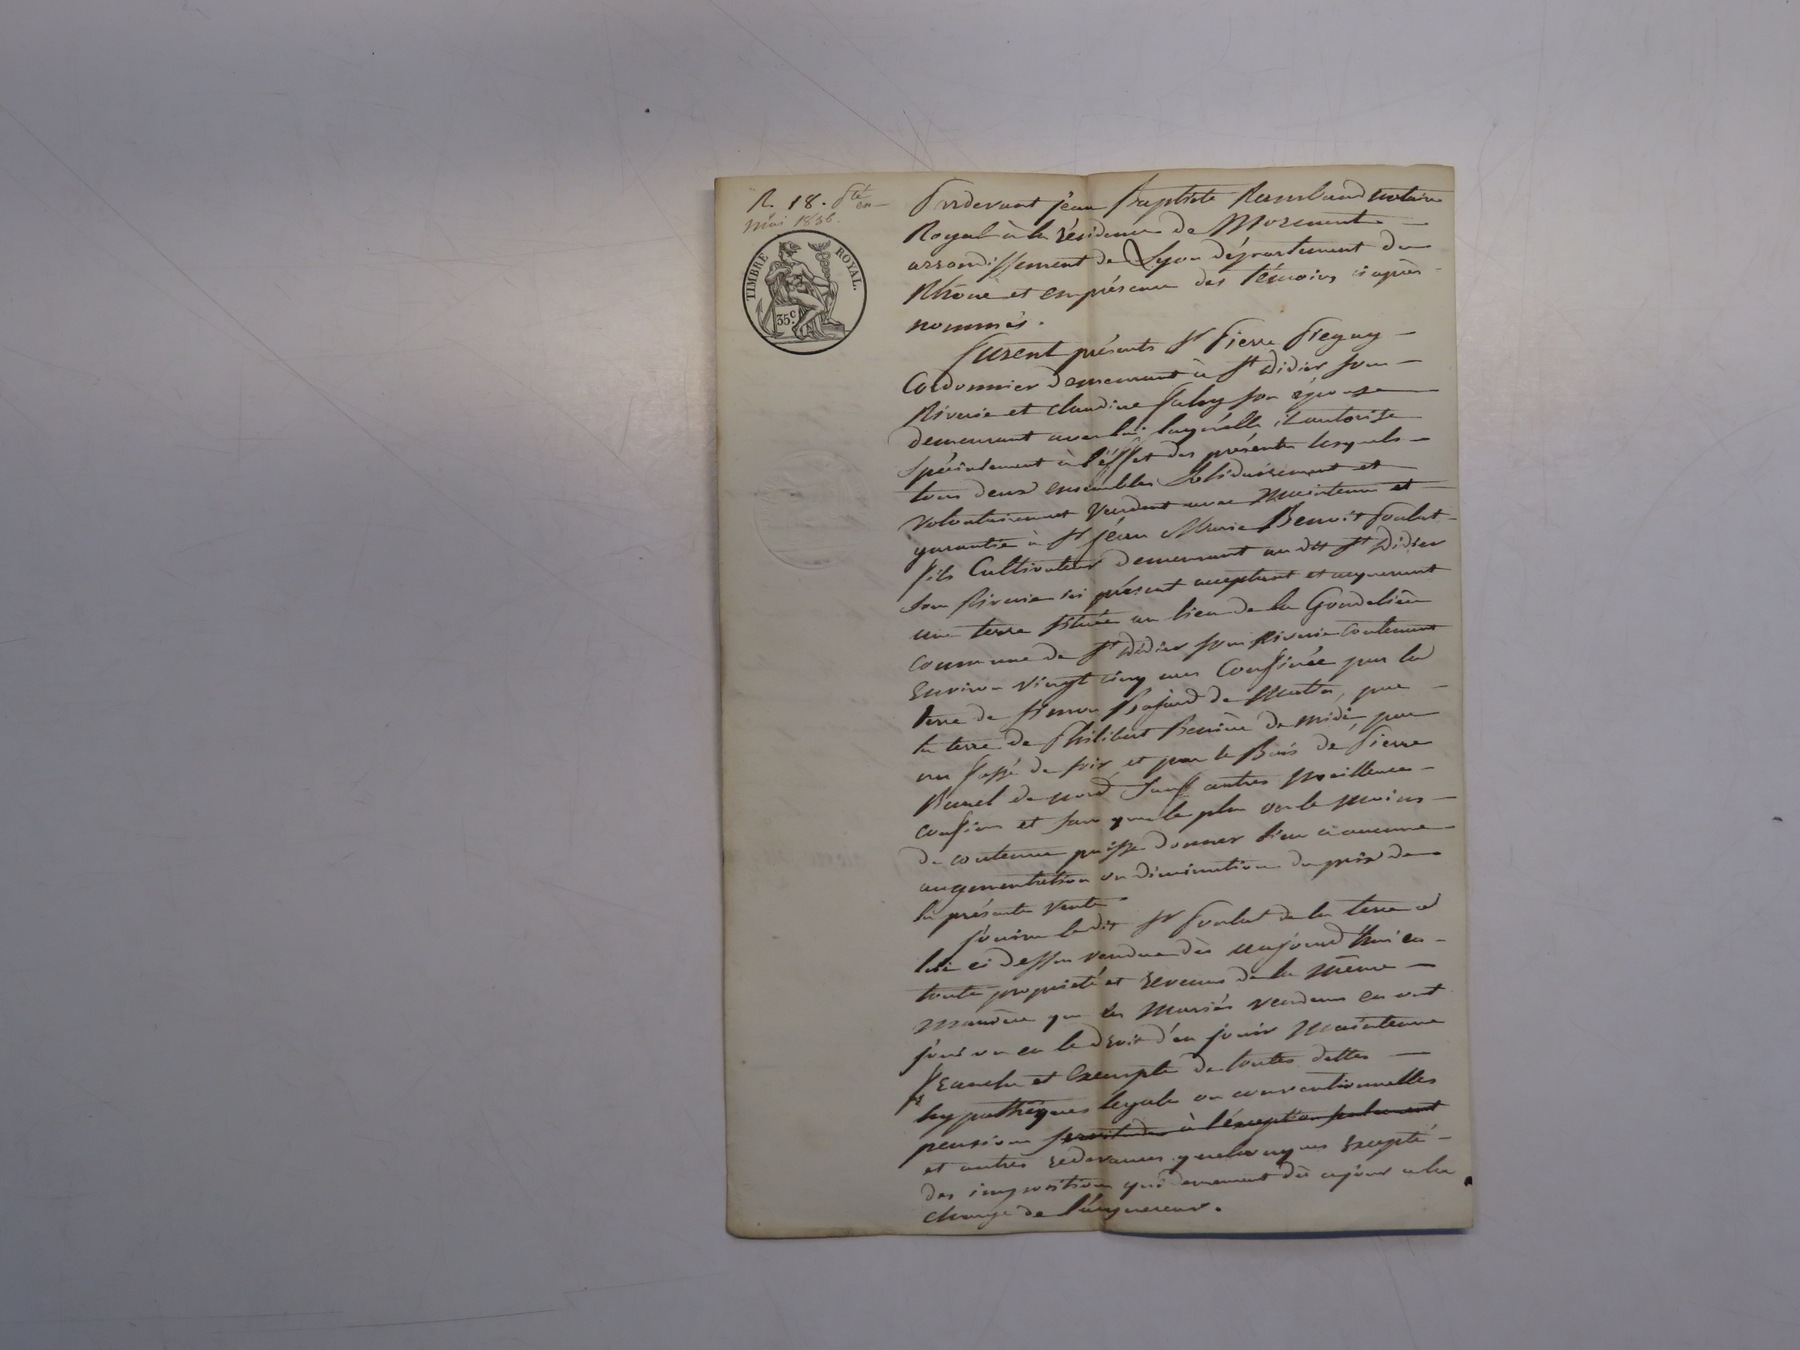 R. 18.
mai 1836.
TIMBRE ROYAL.
35 c.
Pardevant jéan Baptiste Rambaud notaire
Royal à la résidence de Mornant
arrondissement de Lyon département du
Rhône et en présence des témoins ci après
nommés.
furent présents Sr Pierre
Cordonnier demeurant à St Didier sous
Riverie et claudine son épouse
demeurant avec lui laquelle il autorise
spécialement à l'éffet des présentes lesquels
tous deux ensembles solidairement et
volontairement vendent avec maintenue et
garantie à Sr jéan Marie Benoit
fils Cultivateur demeurant au dit St Didier
sous Riverie ici présent acceptant et acquerant
une terre située au lieu de la Gondelière
commune de St Didier sous Riverie contenant
environ vingt cinq ares Confinée par la
terre de de matin, par
la terre de Philibert de midi, par
un fossé de soir et par le Bois de Pierre
de nord sauf autres meilleures
confins et sans que le plus ou le moins
de contenue puisse donner lieu à aucune
augmentation ou diminution du prix de
la présente vente
jouira le dit Sr de la terre à
lui ci dessus vendue dès aujourd'hui en
toute propriété et revenus de la même
manière que les mariés vendeurs en ont
joui ou eu le droit d'en jouir maintenue
franche et exempte de toutes dettes
hypothéques legales ou conventionnelles
pension servitudes à l'éxception seulement
et autres redevances quelconques excepté
des impositions qui demeurent dès ce jour a la
charge de l'acquereur.